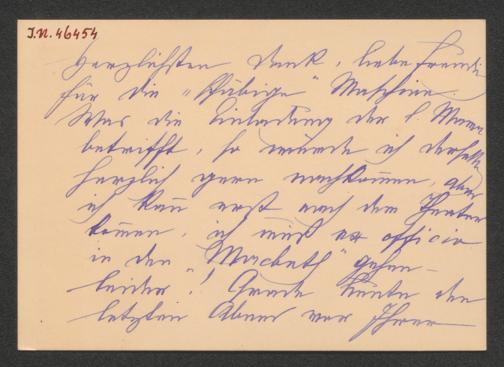 J.N. 46454
Herzlichsten Dank, liebe Freundin
für die „ Maschine.
Was die Einladung der l. Mama
betrifft, so würde ich derselben
herzlich gern nachkommen, aber
ich kann erst nach dem Theater
kommen, ich muß ex officio
in den „Macbeth“ gehen –
leider! Grade heute den
letzten Abend vor Ihrer